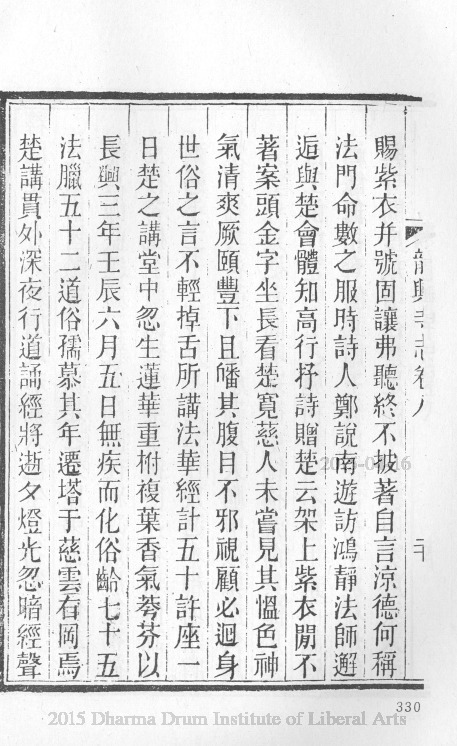 賜紫衣并號固讓弗聽終不披著自言涼德何稱
法門命數之服時詩人鄭說南遊訪鴻靜法師邂
逅與楚會體知高行抒詩贈楚云架上紫衣閒不
著案頭金字坐長看楚寬慈人未嘗見其慍色神
氣清爽厥頤豐下且皤其腹目不邪視顧必迴身
世俗之言不輕掉舌所講法華經計五十許座一
日楚之講堂中忽生蓮華重柎複葉香氣芩芬以
長興三年壬辰六月五日無疾而化俗齡七十五
法臘五十二道俗孺慕其年遷塔于慈雲右岡焉
楚講貫外深夜行道誦經將逝夕燈光忽暗經聲
龍興寺志卷八
二十
330
2015 Dharma Drum Institute of Liberal Arts